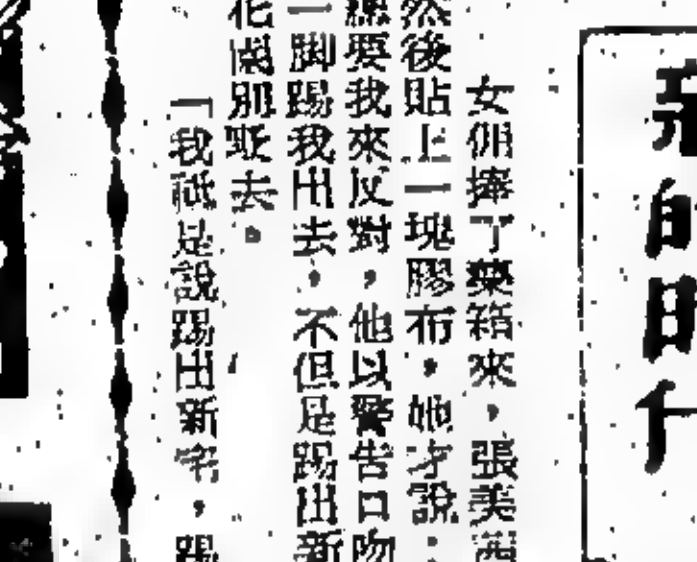 的時
女佣捧了藥箱來，張美茜
然後貼上一塊膠布，她才說：
要我來反對，他以警告口吻
一脚踢我出去，不但是踢出新
花園別墅去。
「我祇是說踢出新宅，踢